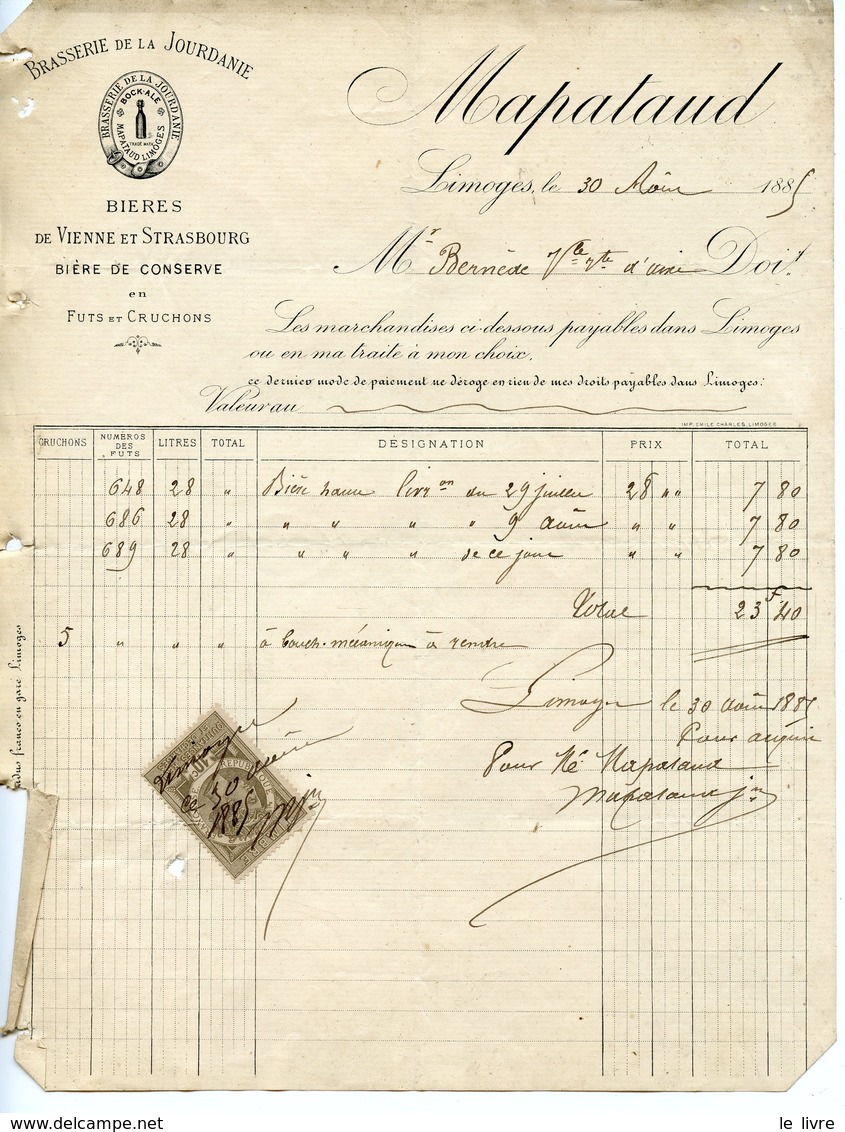 BRASSERIE DE LA JOURDANIE
BRASSERIE DE LA JOURDANIE
BOCK-ALE
TRADE MARK
MAPATAUD LIMOGES
BIERES
DE VIENNE ET STRASBOURG
BIÈRE DE CONSERVE
en
FUTS ET CRUCHONS
Mapataud
Limoges, le 30 Août 1885
Mr Bernède Doit
Les marchandises ci-dessous payables dans Limoges
ou en ma traite à mon choix,
ce dernier mode de paiement ne déroge en rien de mes droits payables dans Limoges:
Valeur au
IMP. EMILE CHARLES, LIMOGES
CRUCHONS NUMÉROS DES FUTS LITRES TOTAL DÉSIGNATION PRIX TOTAL
648 28 " Bière livron du 29 juillet 28 " " 7 80
686 28 " " " " " 9 août " " 7 80
689 28 " " " " de ce jour " " 7 80
Total 23f 40
5 " " " à bouch. mécanique à rendre
Limoges le 30 août 1885
Pour acquit
Pour Mapataud
Mapataud jne
franco en gare Limoges
RÉPUBLIQUE
Limoges
ce 30 août
1885
le livre